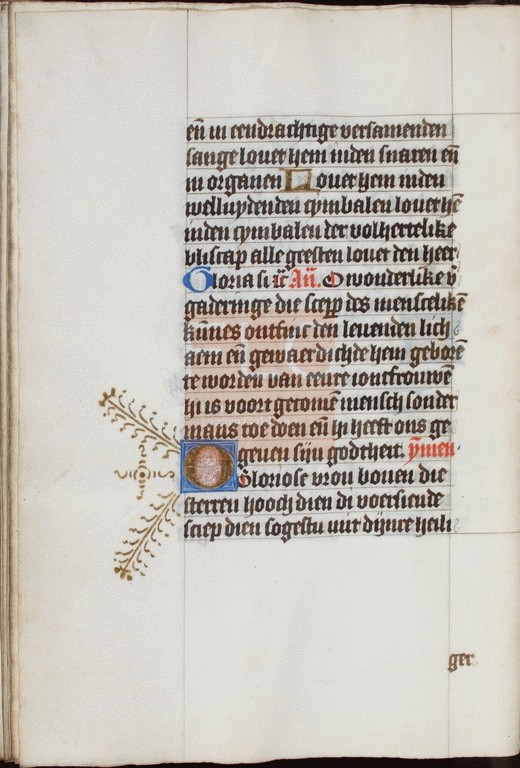 eñ in eendrachtige versamenden
sange louet hem inden snaren eñ
in organen Louet hem inden
welluydenden cymbalen louet hē
inden cymbalen der volhertelike
bliscap alle geesten louet den heer
Gloria si ic̄ An̄. O wonderlike v̄
gaderinge die scepꝑ des menscelikē
kūnes ontfinc den leuenden lich
aem eñ gewaerdichde hem geborē
te worden van eenre ioncfrouwē
hi is voort gecomē mensch sonder
mans toe doen eñ hi heeft ons ge
geuen sijn godtheit. ymen
O Gloriose vrou bouen die
sterren hooch dien di voersiende
sciep dien sogestu uut dijnre heili
ger